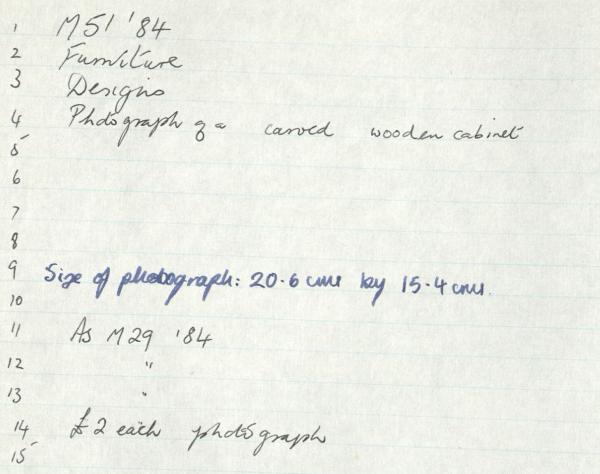 1 M51 '84
2 Furniture
3 Designs
4 Photograph of a carved wooden cabinet
5
6
7
8
9 Size of photograph: 20·6 cms by 15·4 cms.
10
11 As M29 '84
12 "
13 "
14 £2 each photograph
15